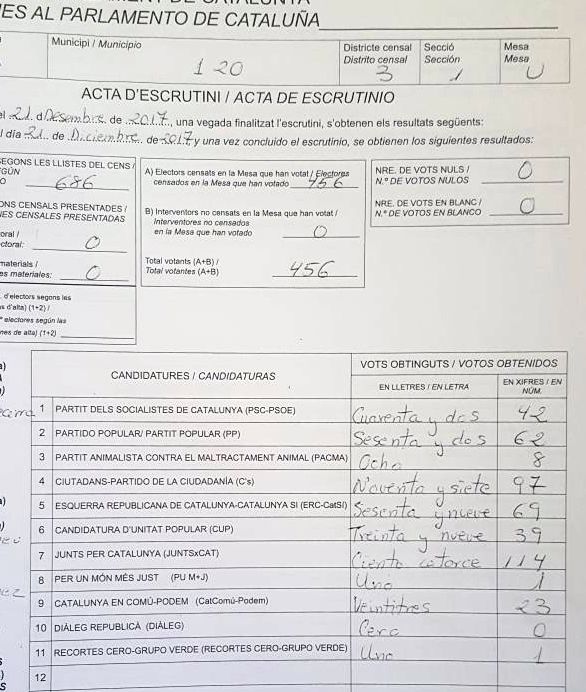 ES AL PARLAMENTO DE CATALUÑA
Municipi / Municipio
120
Districte censal
Distrito censal
3
Secció
Sección
1
Mesa
Mesa
U
ACTA D'ESCRUTINI / ACTA DE ESCRUTINIO
el 21 d Desembre de 2017, una vegada finalitzat l'escrutini, s'obtenen els resultats següents:
l día 21 de Diciembre de 2017 y una vez concluido el escrutinio, se obtienen los siguientes resultados:
EGONS LES LLISTES DEL CENS /
GÚN
O 686
ONS CENSALS PRESENTADES /
NES CENSALES PRESENTADAS
oral /
ctoral: 0
materials /
es materiales: 0
d'electors segons les
s d'alta) (1+2) /
electores según las
nes de alta) (1+2)
A) Electors censats en la Mesa que han votat / Electores
censados en la Mesa que han votado 456
B) Interventors no censats en la Mesa que han votat /
Interventores no censados
en la Mesa que han votado 0
Total votants (A+B) /
Total votantes (A+B) 456
NRE. DE VOTS NULS /
N.º DE VOTOS NULOS 0
NRE. DE VOTS EN BLANC /
N.º DE VOTOS EN BLANCO 0
CANDIDATURES / CANDIDATURAS
VOTS OBTINGUTS / VOTOS OBTENIDOS
EN LLETRES / EN LETRA
EN XIFRES / EN
NÚM.
1 PARTIT DELS SOCIALISTES DE CATALUNYA (PSC-PSOE) Cuarenta y dos 42
2 PARTIDO POPULAR/ PARTIT POPULAR (PP) Sesenta y dos 62
3 PARTIT ANIMALISTA CONTRA EL MALTRACTAMENT ANIMAL (PACMA) Ocho 8
4 CIUTADANS-PARTIDO DE LA CIUDADANÍA (C's) Noventa y siete 97
5 ESQUERRA REPUBLICANA DE CATALUNYA-CATALUNYA SI (ERC-CatSí) Sesenta y nueve 69
6 CANDIDATURA D'UNITAT POPULAR (CUP) Treinta y nueve 39
7 JUNTS PER CATALUNYA (JUNTSxCAT) Ciento catorce 114
8 PER UN MÓN MÉS JUST (PU M+J) Uno 1
9 CATALUNYA EN COMÚ-PODEM (CatComú-Podem) Veintitres 23
10 DIÀLEG REPUBLICÀ (DIÀLEG) Cero 0
11 RECORTES CERO-GRUPO VERDE (RECORTES CERO-GRUPO VERDE) Uno 1
12